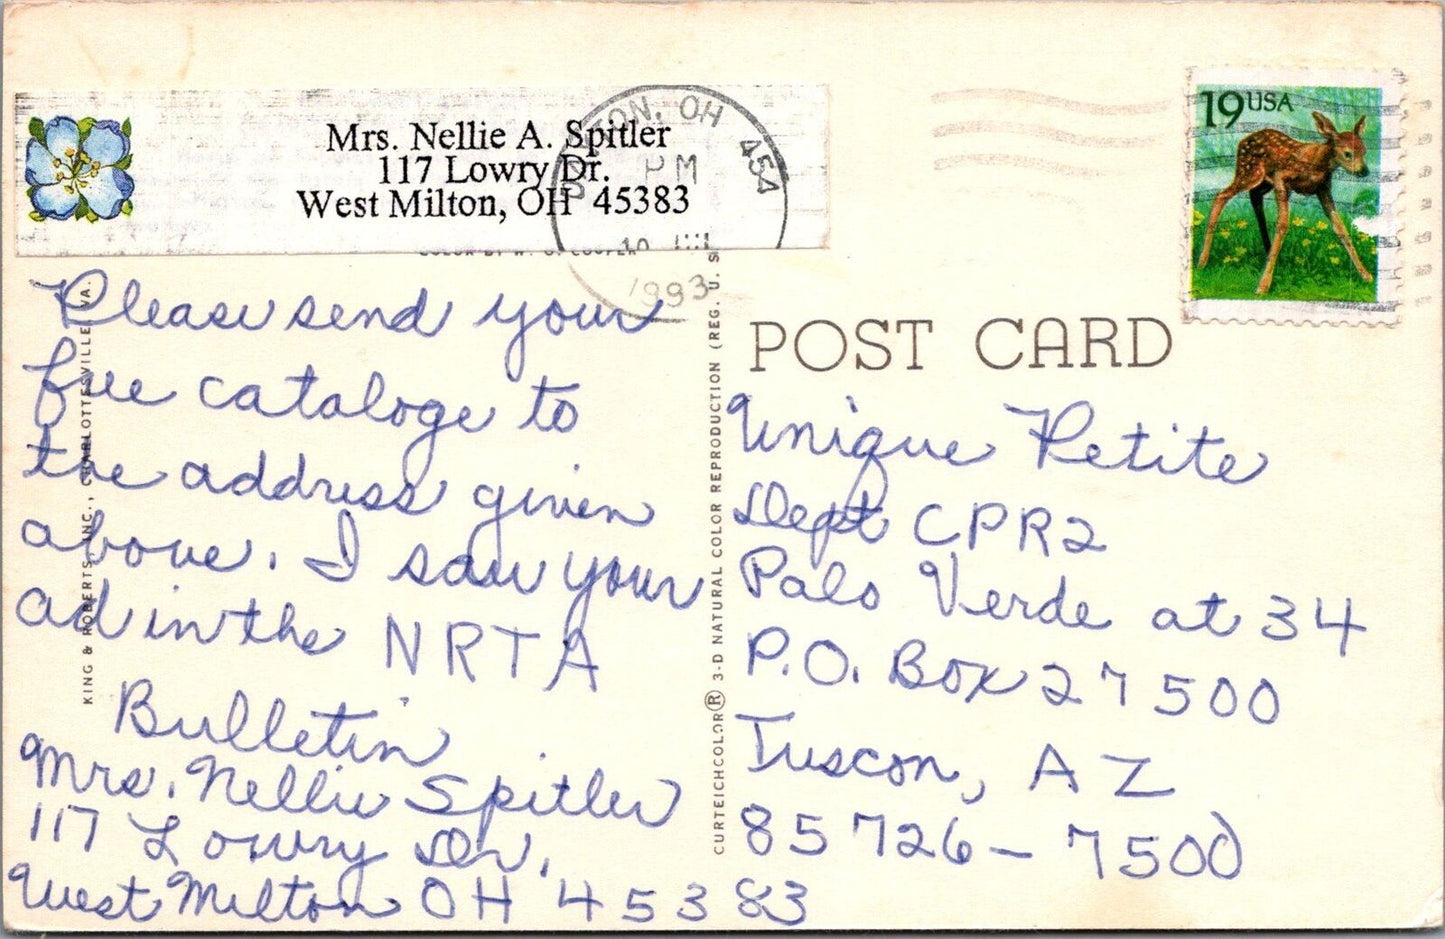 Mrs. Nellie A. Spitler
117 Lowry Dr.
West Milton, OH 45383
TON, OH 454
PM
10
1993
19 USA
POST CARD
Please send your
free cataloge to
the address given
above. I saw your
ad in the NRTA
Bulletin
Mrs. Nellie Spitler
117 Lowry Dr.
West Milton OH 45383
Unique Petite
Dept CPR2
Palo Verde at 34
P.O. Box 27500
Tuscon, AZ
85726-7500
KING & ROBERTS, INC., CHARLOTTESVILLE, VA.
COLOR BY W. G. COOPER
CURTEICHCOLOR® 3-D NATURAL COLOR REPRODUCTION (REG. U. S